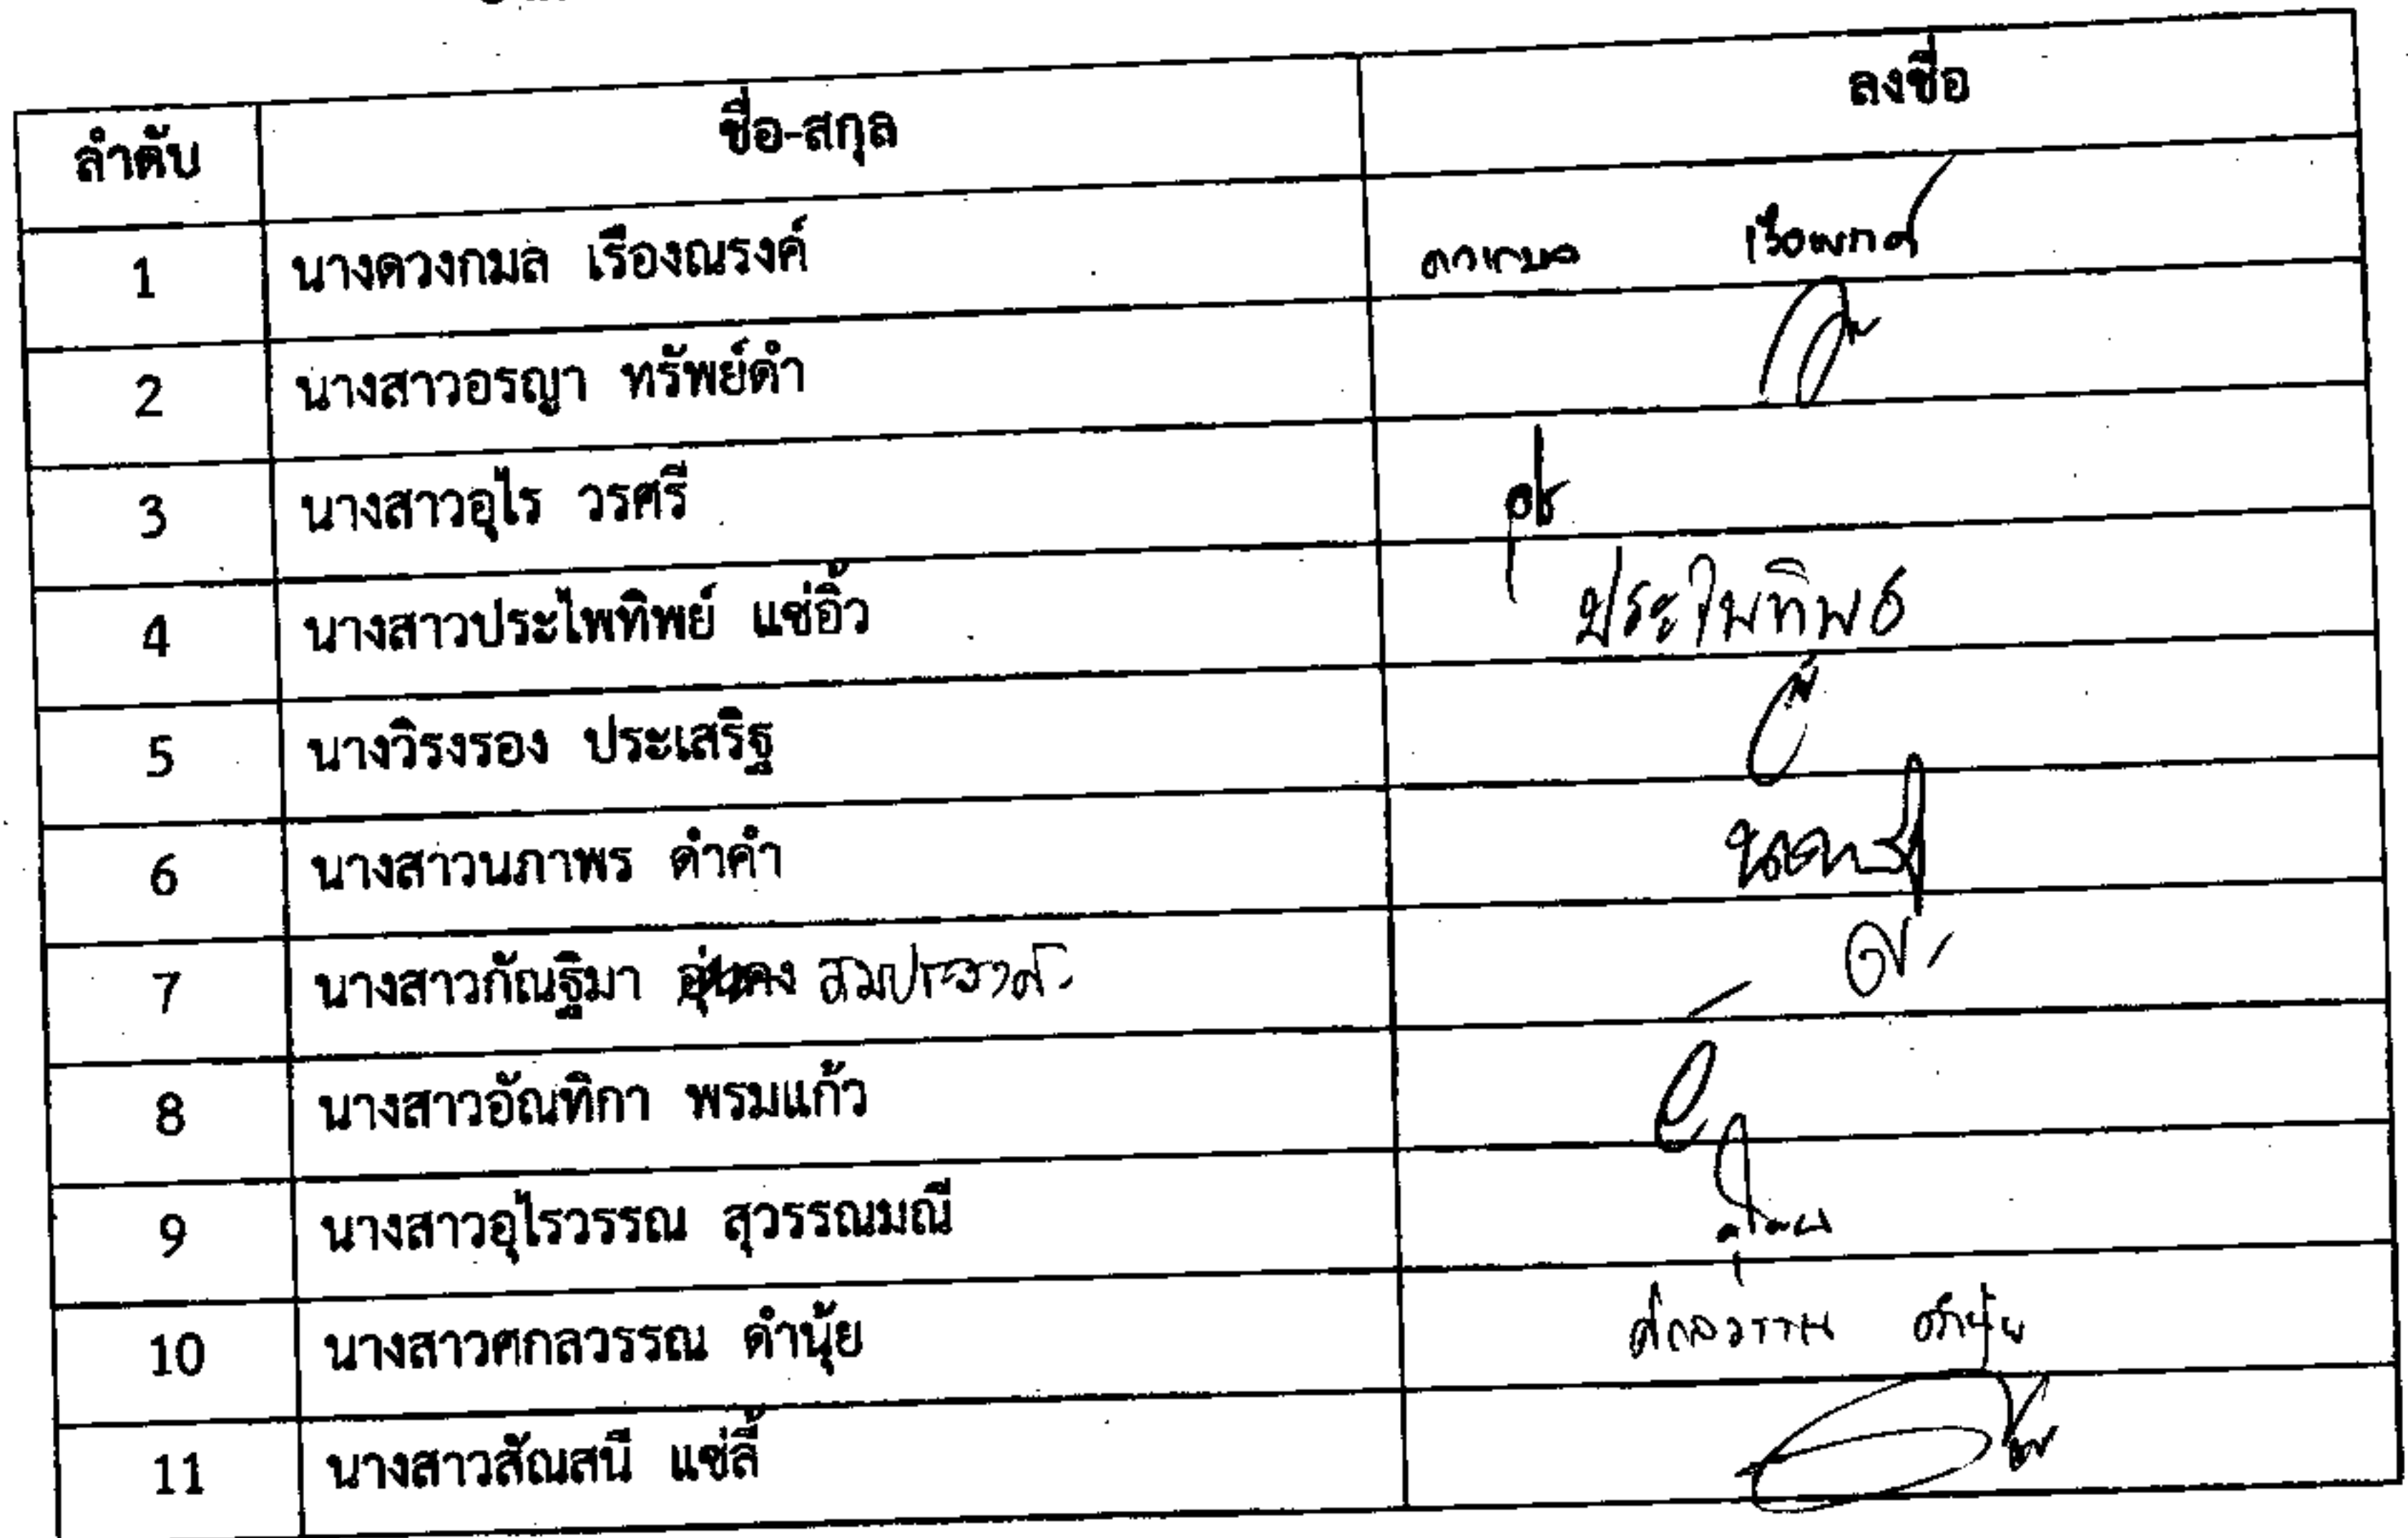 ลำดับ ชื่อ-สกุล ลงชื่อ
1 นางดวงกมล เรืองณรงค์ ดวงกมล เรืองณรงค์
2 นางสาวอรญา ทรัพย์ดำ
3 นางสาวอุไร วรศรี อุไร
4 นางสาวประไพทิพย์ แซ่อิ้ว ประไพทิพย์
5 นางวิรงรอง ประเสริฐ
6 นางสาวนภาพร ดำคำ
7 นางสาวกัณฐิมา
8 นางสาวอัณทิกา พรมแก้ว
9 นางสาวอุไรวรรณ สุวรรณมณี
10 นางสาวศกลวรรณ ดำนุ้ย ศกลวรรณ ดำนุ้ย
11 นางสาวสัณสนี แซ่ลี้